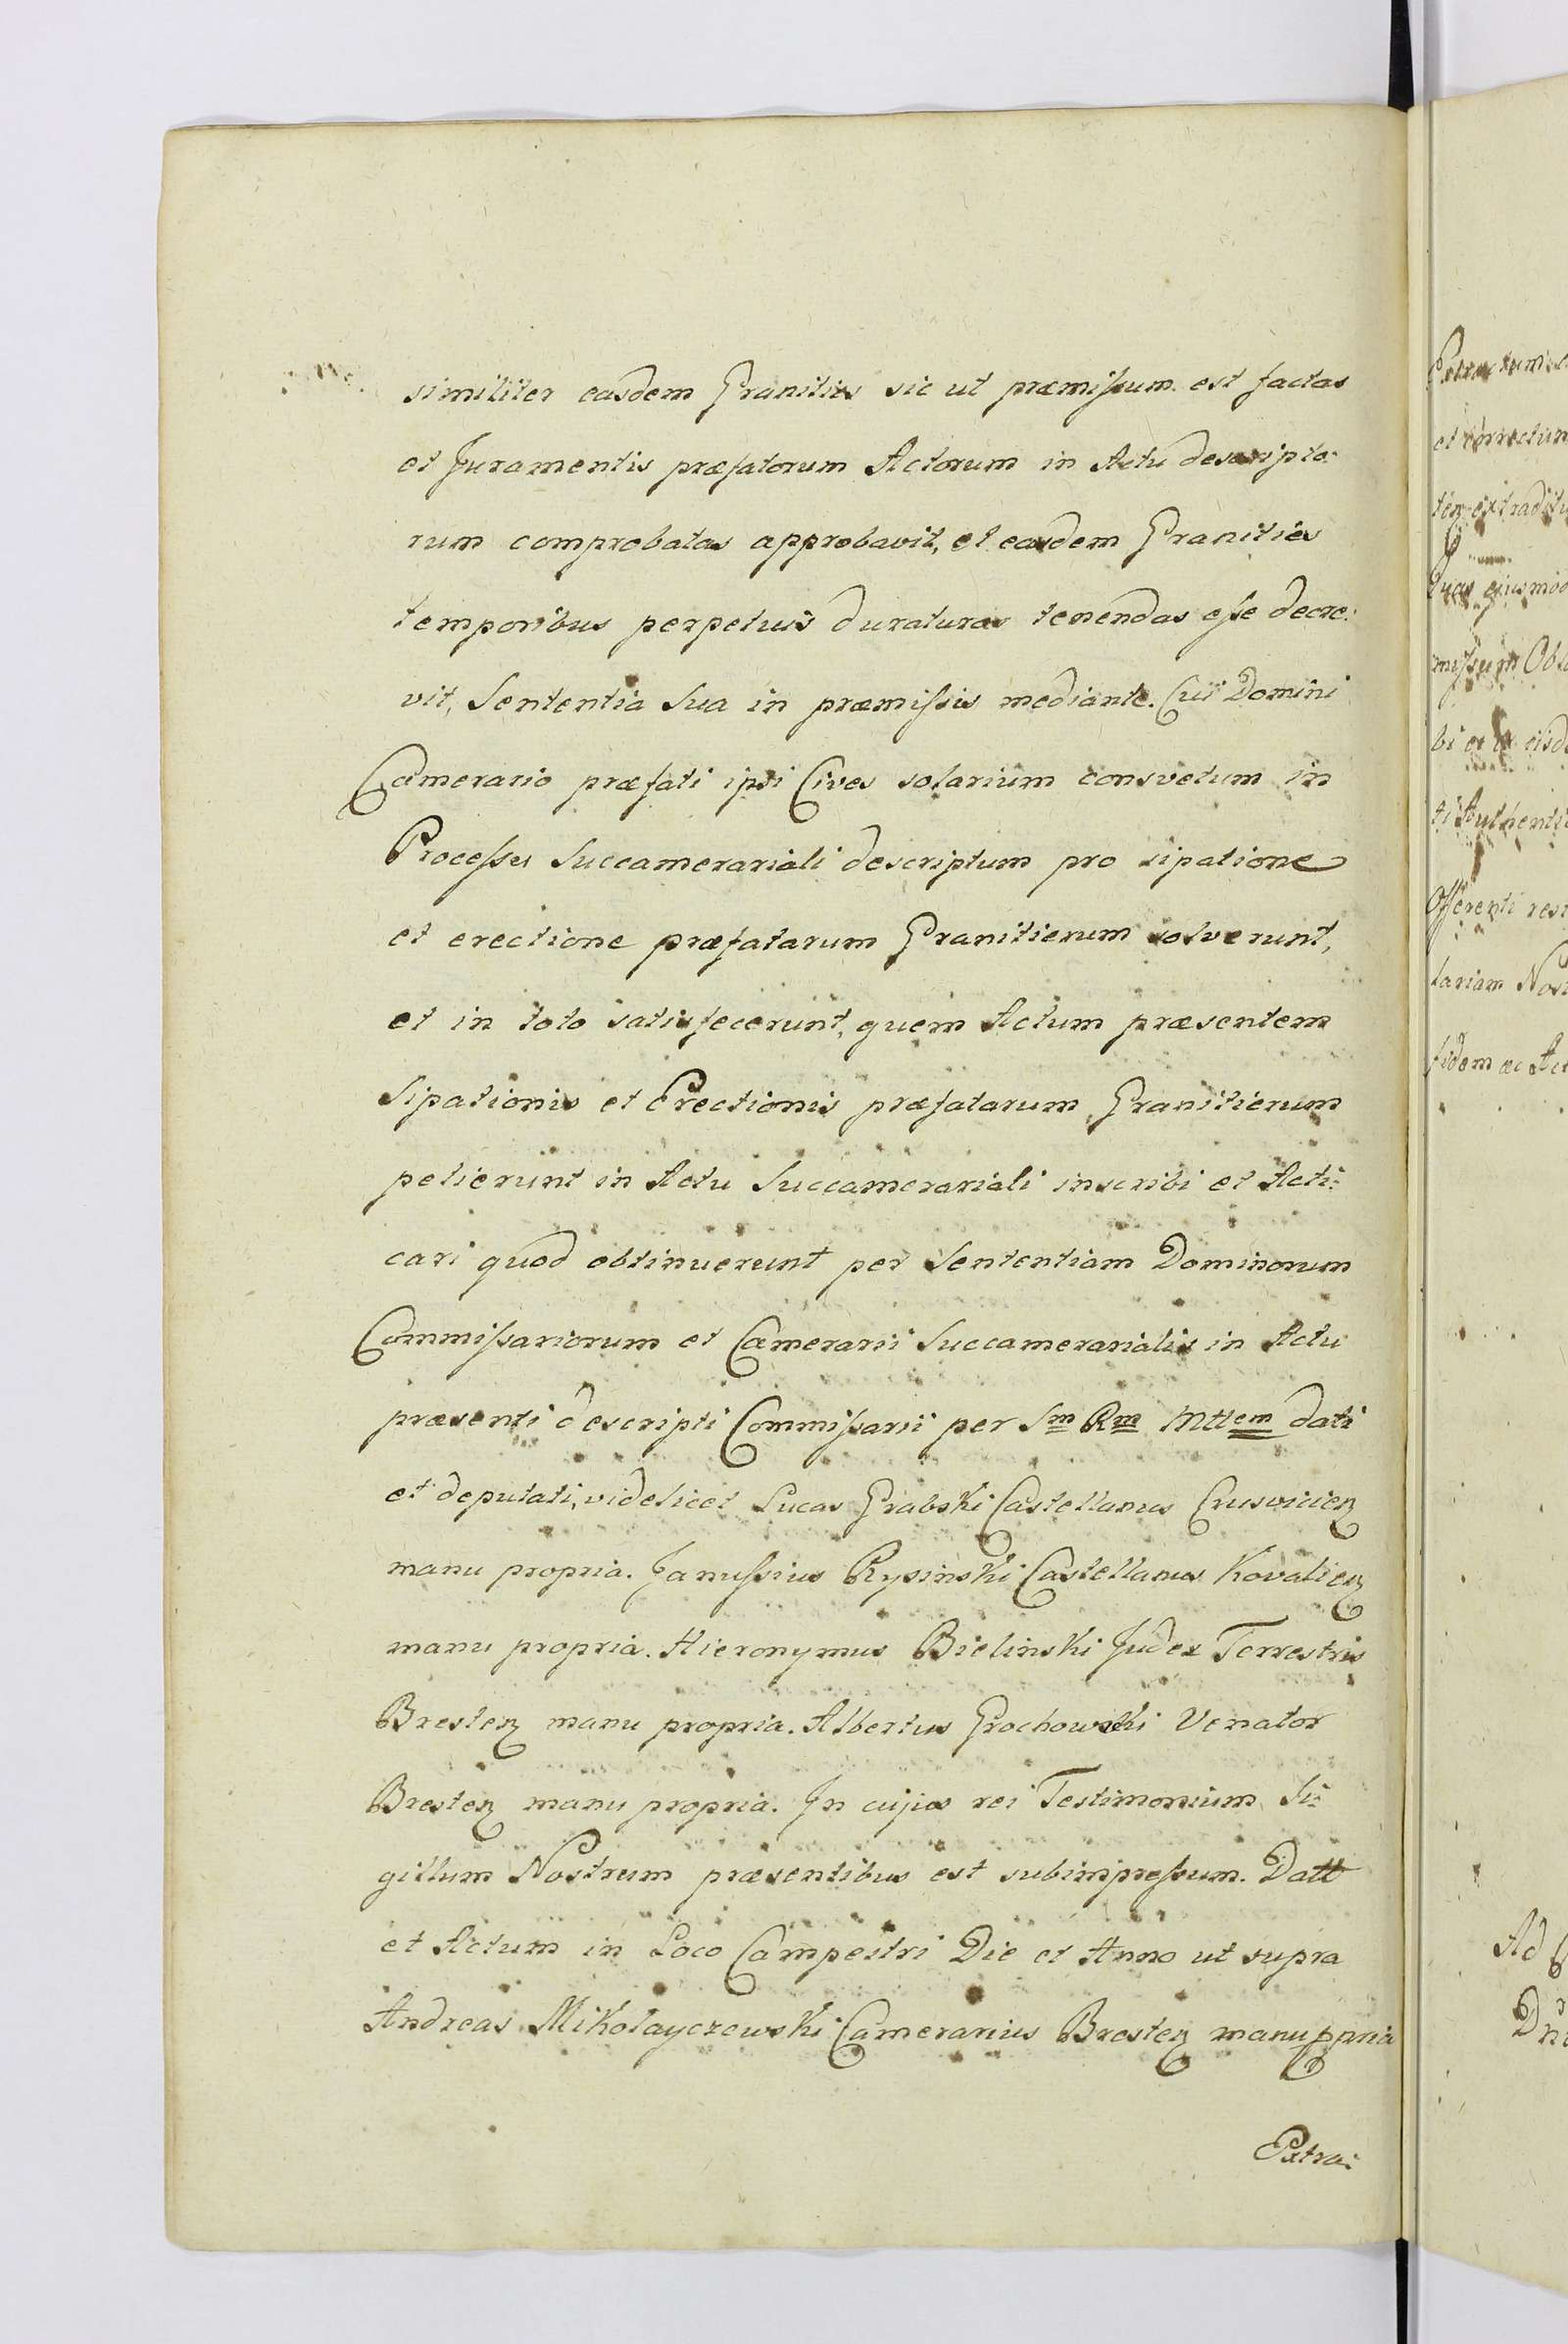 similiter easdem Granities sic ut præmissum est factas
et Juramentis præfatorum Actorum in Actu descripto:
rum comprobatas approbavit, et easdem Granities
temporibus perpetuis duraturas tenendas esse decre:
vit, Sententia Sua in præmissis mediante. Cui Domini
Camerario præfati ipsi Cives solarium consvetum in
Processu Succamerariali descriptum pro sipatione
et erectione præfatarum Granitierum solverunt,
et in toto satisfecerunt, quem Actum præsentem
Sipationis et Erectionis præfatarum Granitierum
petierunt in Actu Succamerariali inscribi et Acti:
cari quod obtinuerunt per Sententiam Dominorum
Commissariorum et Camerarii Succamerarialis in Actu
præsenti descripti Commissarii per Sm Rm Mttem dati
et deputati, videlicet Lucas Grabski Castellanus Crusvicien
manu propria. Janussius Rysinski Castellanus Kovalien
manu propria. Hieronymus Bielinski Judex Terrestris
Bresten manu propria. Albertus Grochowski Venator
Bresten manu propria. In cujus rei Testimonium Si:
gillum Nostrum præsentibus est subimpressum. Datt
et Actum in Loco Campestri Die et Anno ut supra
Andreas Mikolayczewski Camerarius Bresten manu ppria
Extra:
et correctum
missum
Offerenti
fidem ac
Ad